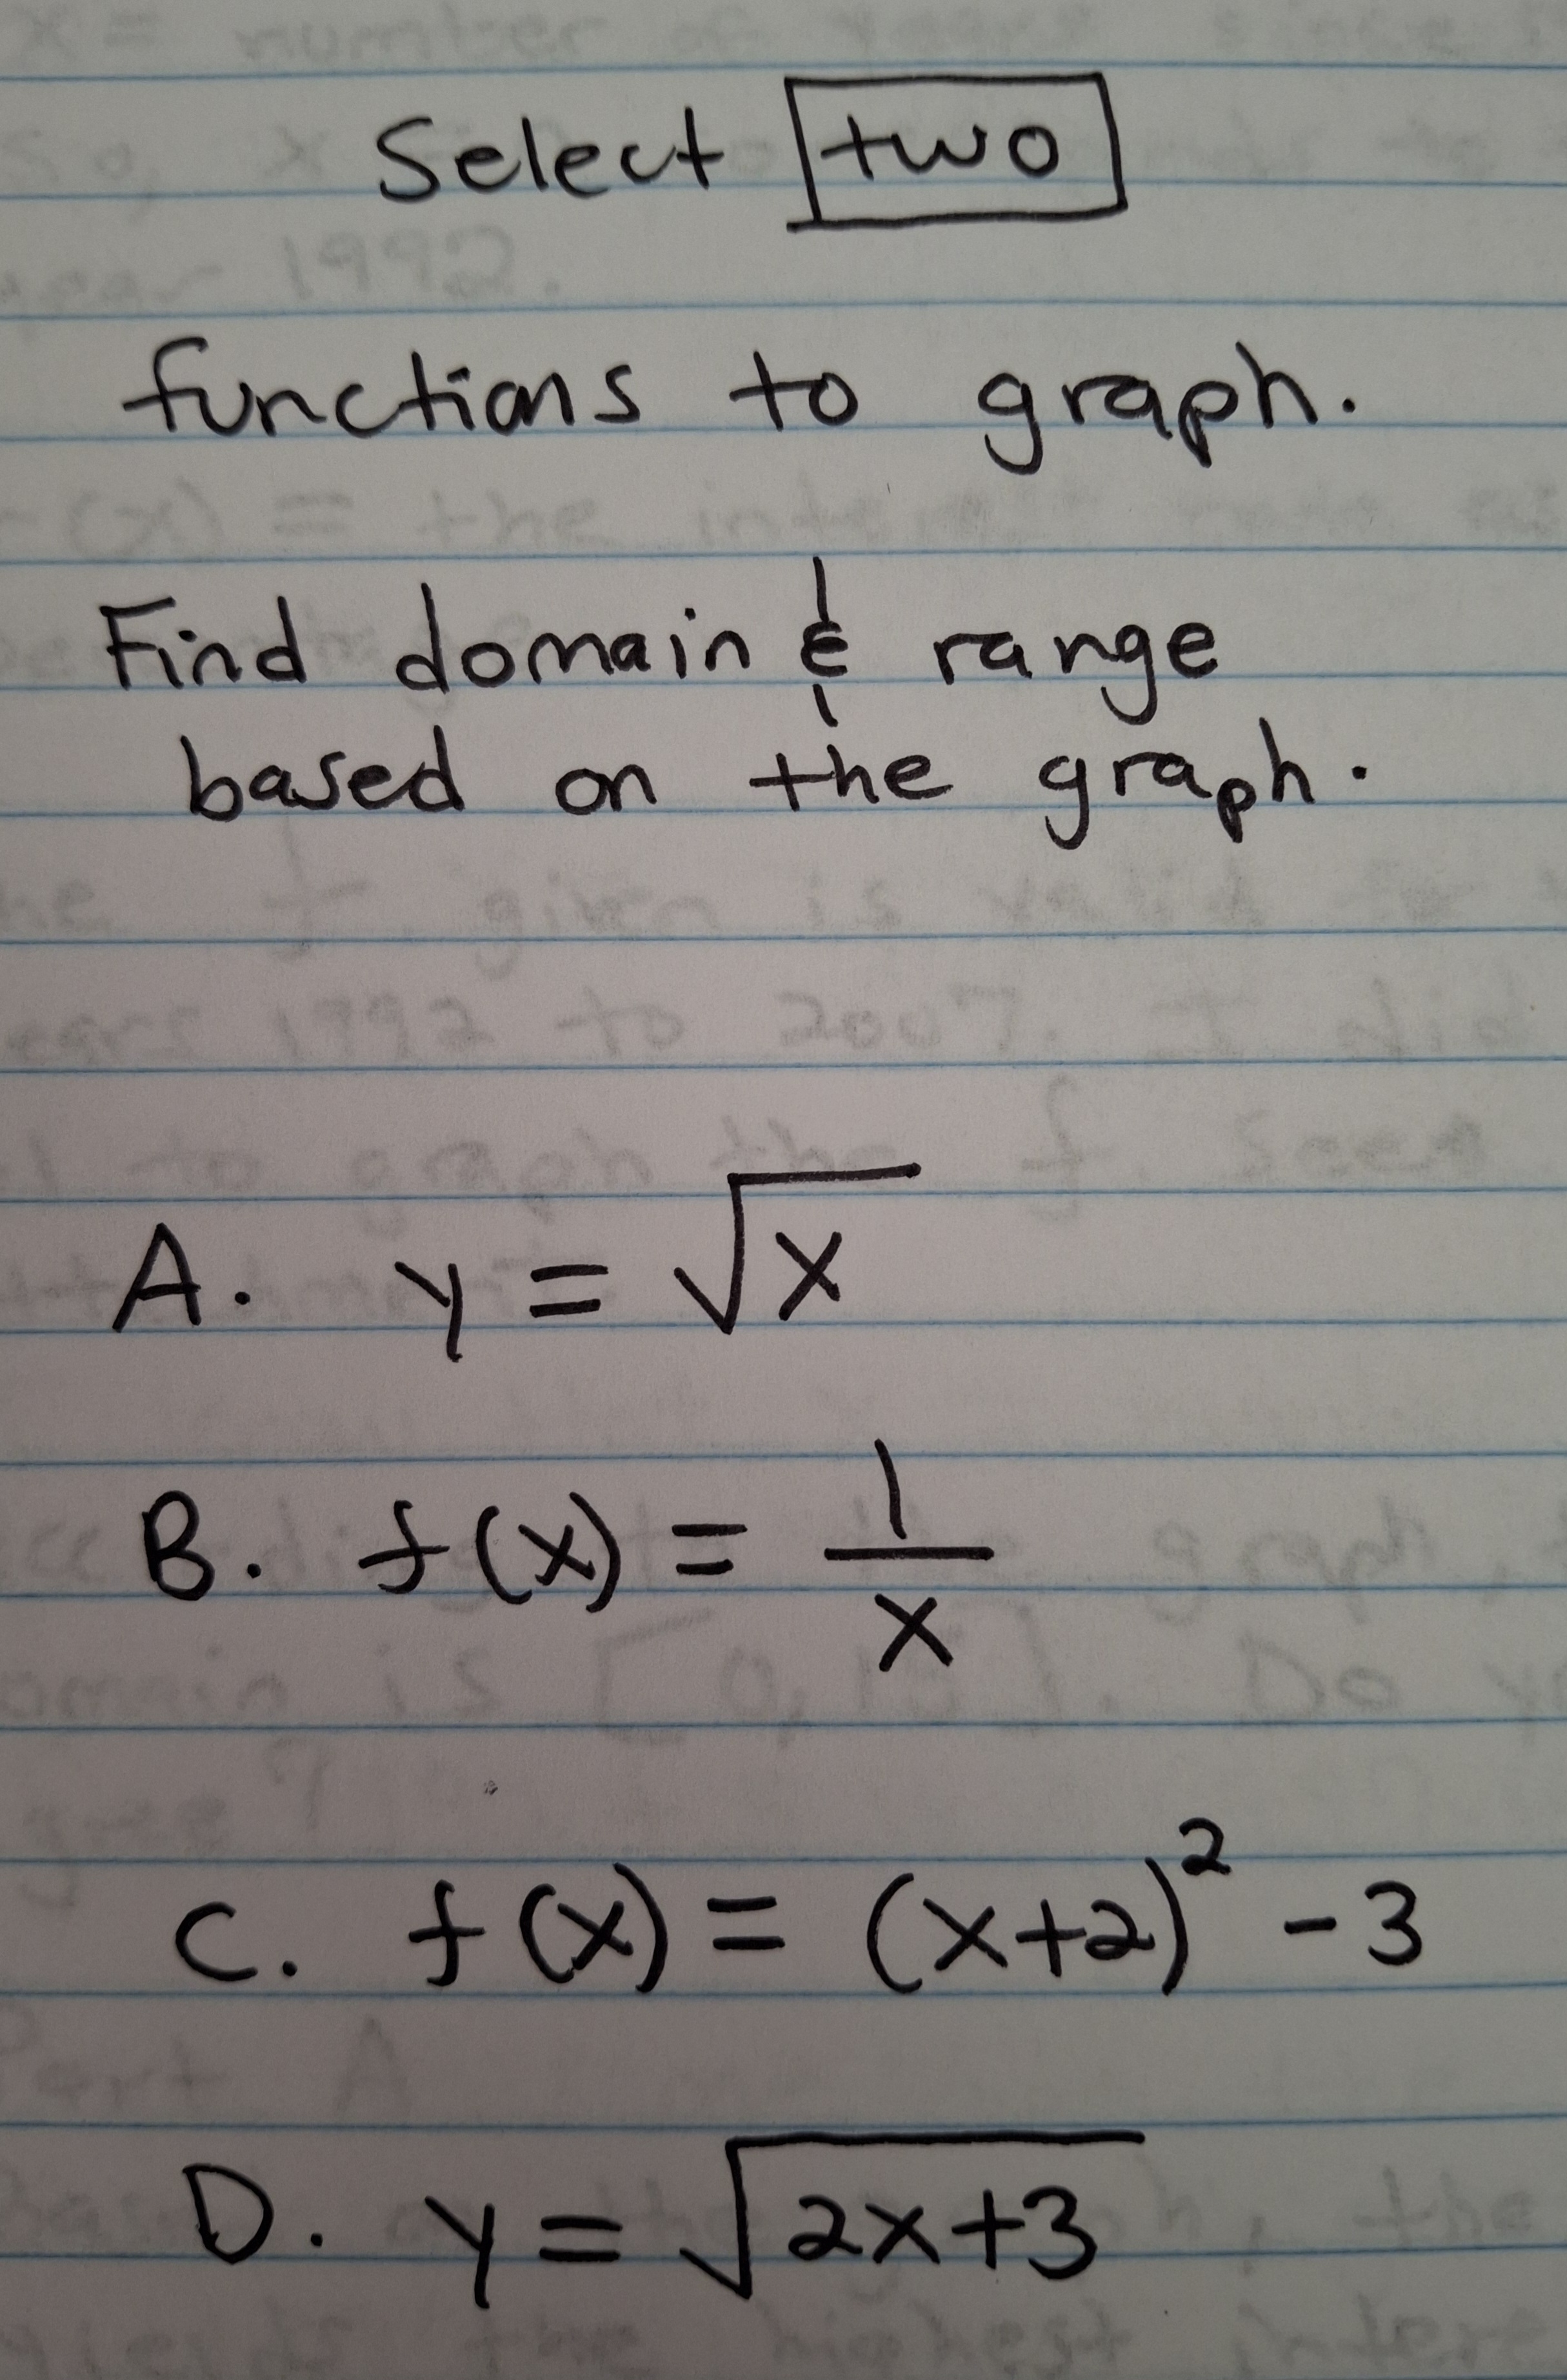 Select two
functions to graph.
Find domain & range
based on the graph.
A. y = √x
B. f(x) = 1/x
C. f(x) = (x+2)² - 3
D. y = √2x+3